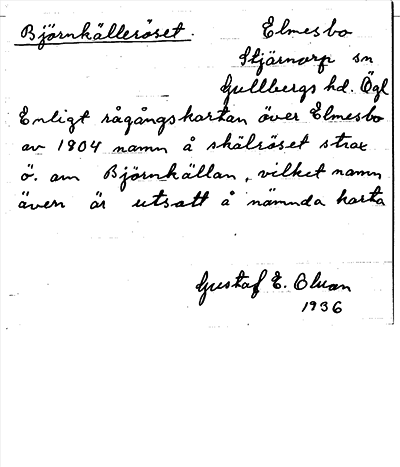 Björnkälleröset. Elmesbo
Stjärnorp sn
Gullbergs hd. Ögl
Enligt rågångskartan över Elmesbo
av 1804 namn å skälröset strax
ö. om Björnkällan, vilket namn
även är utsatt å nämnda karta
Gustaf E. Olson
1936